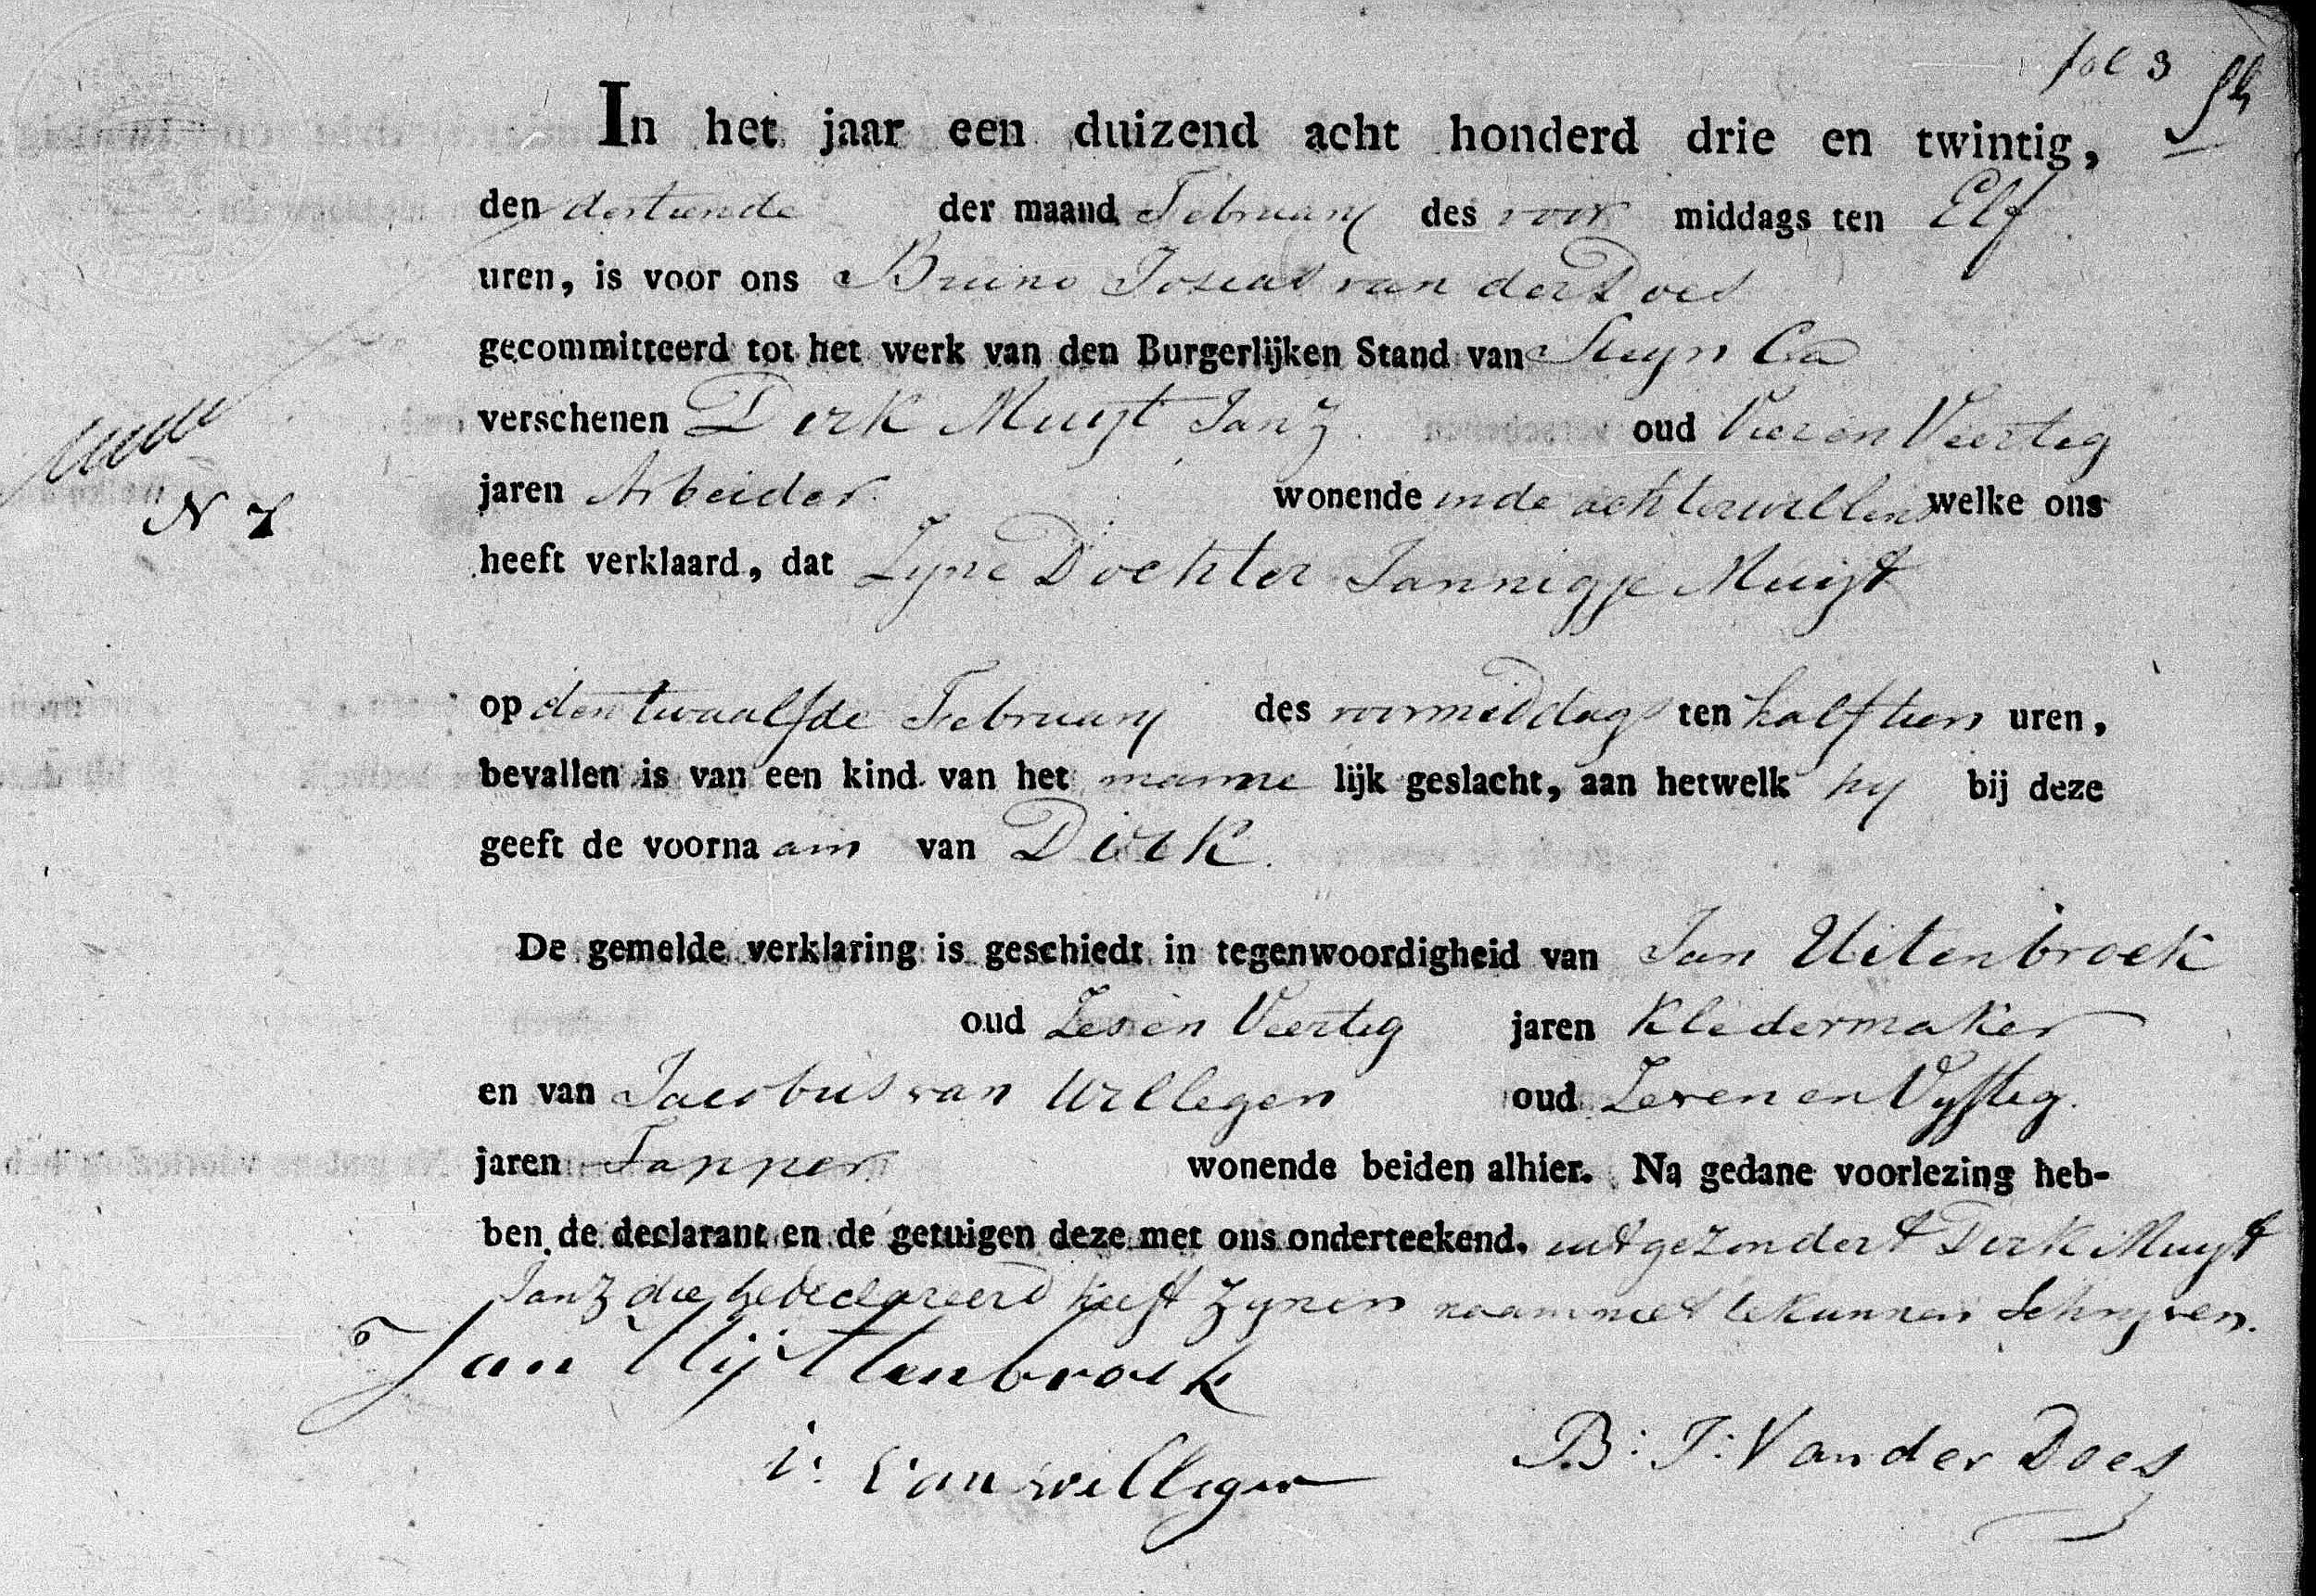 fol 3
In het jaar een duizend acht honderd drie en twintig,
den dertiende der maand February des voor middags ten Elf
uren, is voor ons Bruno Josias van der Does
gecommitteerd tot het werk van den Burgerlijken Stand van Stuyn Ca
verschenen Dirk Muyt Janz oud Vier en Veertig
jaren Arbeider wonende in de achterwillens welke ons
N 7
heeft verklaard, dat Zyne Dochter Jannigje Muyt
op den twaalfde February des voormiddags ten half tien uren,
bevallen is van een kind van het manne lijk geslacht, aan hetwelk hy bij deze
geeft de voorna am van Dirk.
De gemelde verklaring is geschiedt in tegenwoordigheid van Jan Uitenbroek
oud Zes en Veertig jaren Kledermaker
en van Jacobus van Willegen oud Zeven en Vyftig.
jaren Tapper wonende beiden alhier. Na gedane voorlezing heb-
ben de declarant en de getuigen deze met ons onderteekend, uitgezondert Dirk Muyt
Janz die gedeclareerd heeft Zynen naam niet te kunnen Schryven.
Jan Uijttenbroek
i: van willegen
B: J: Van der Does